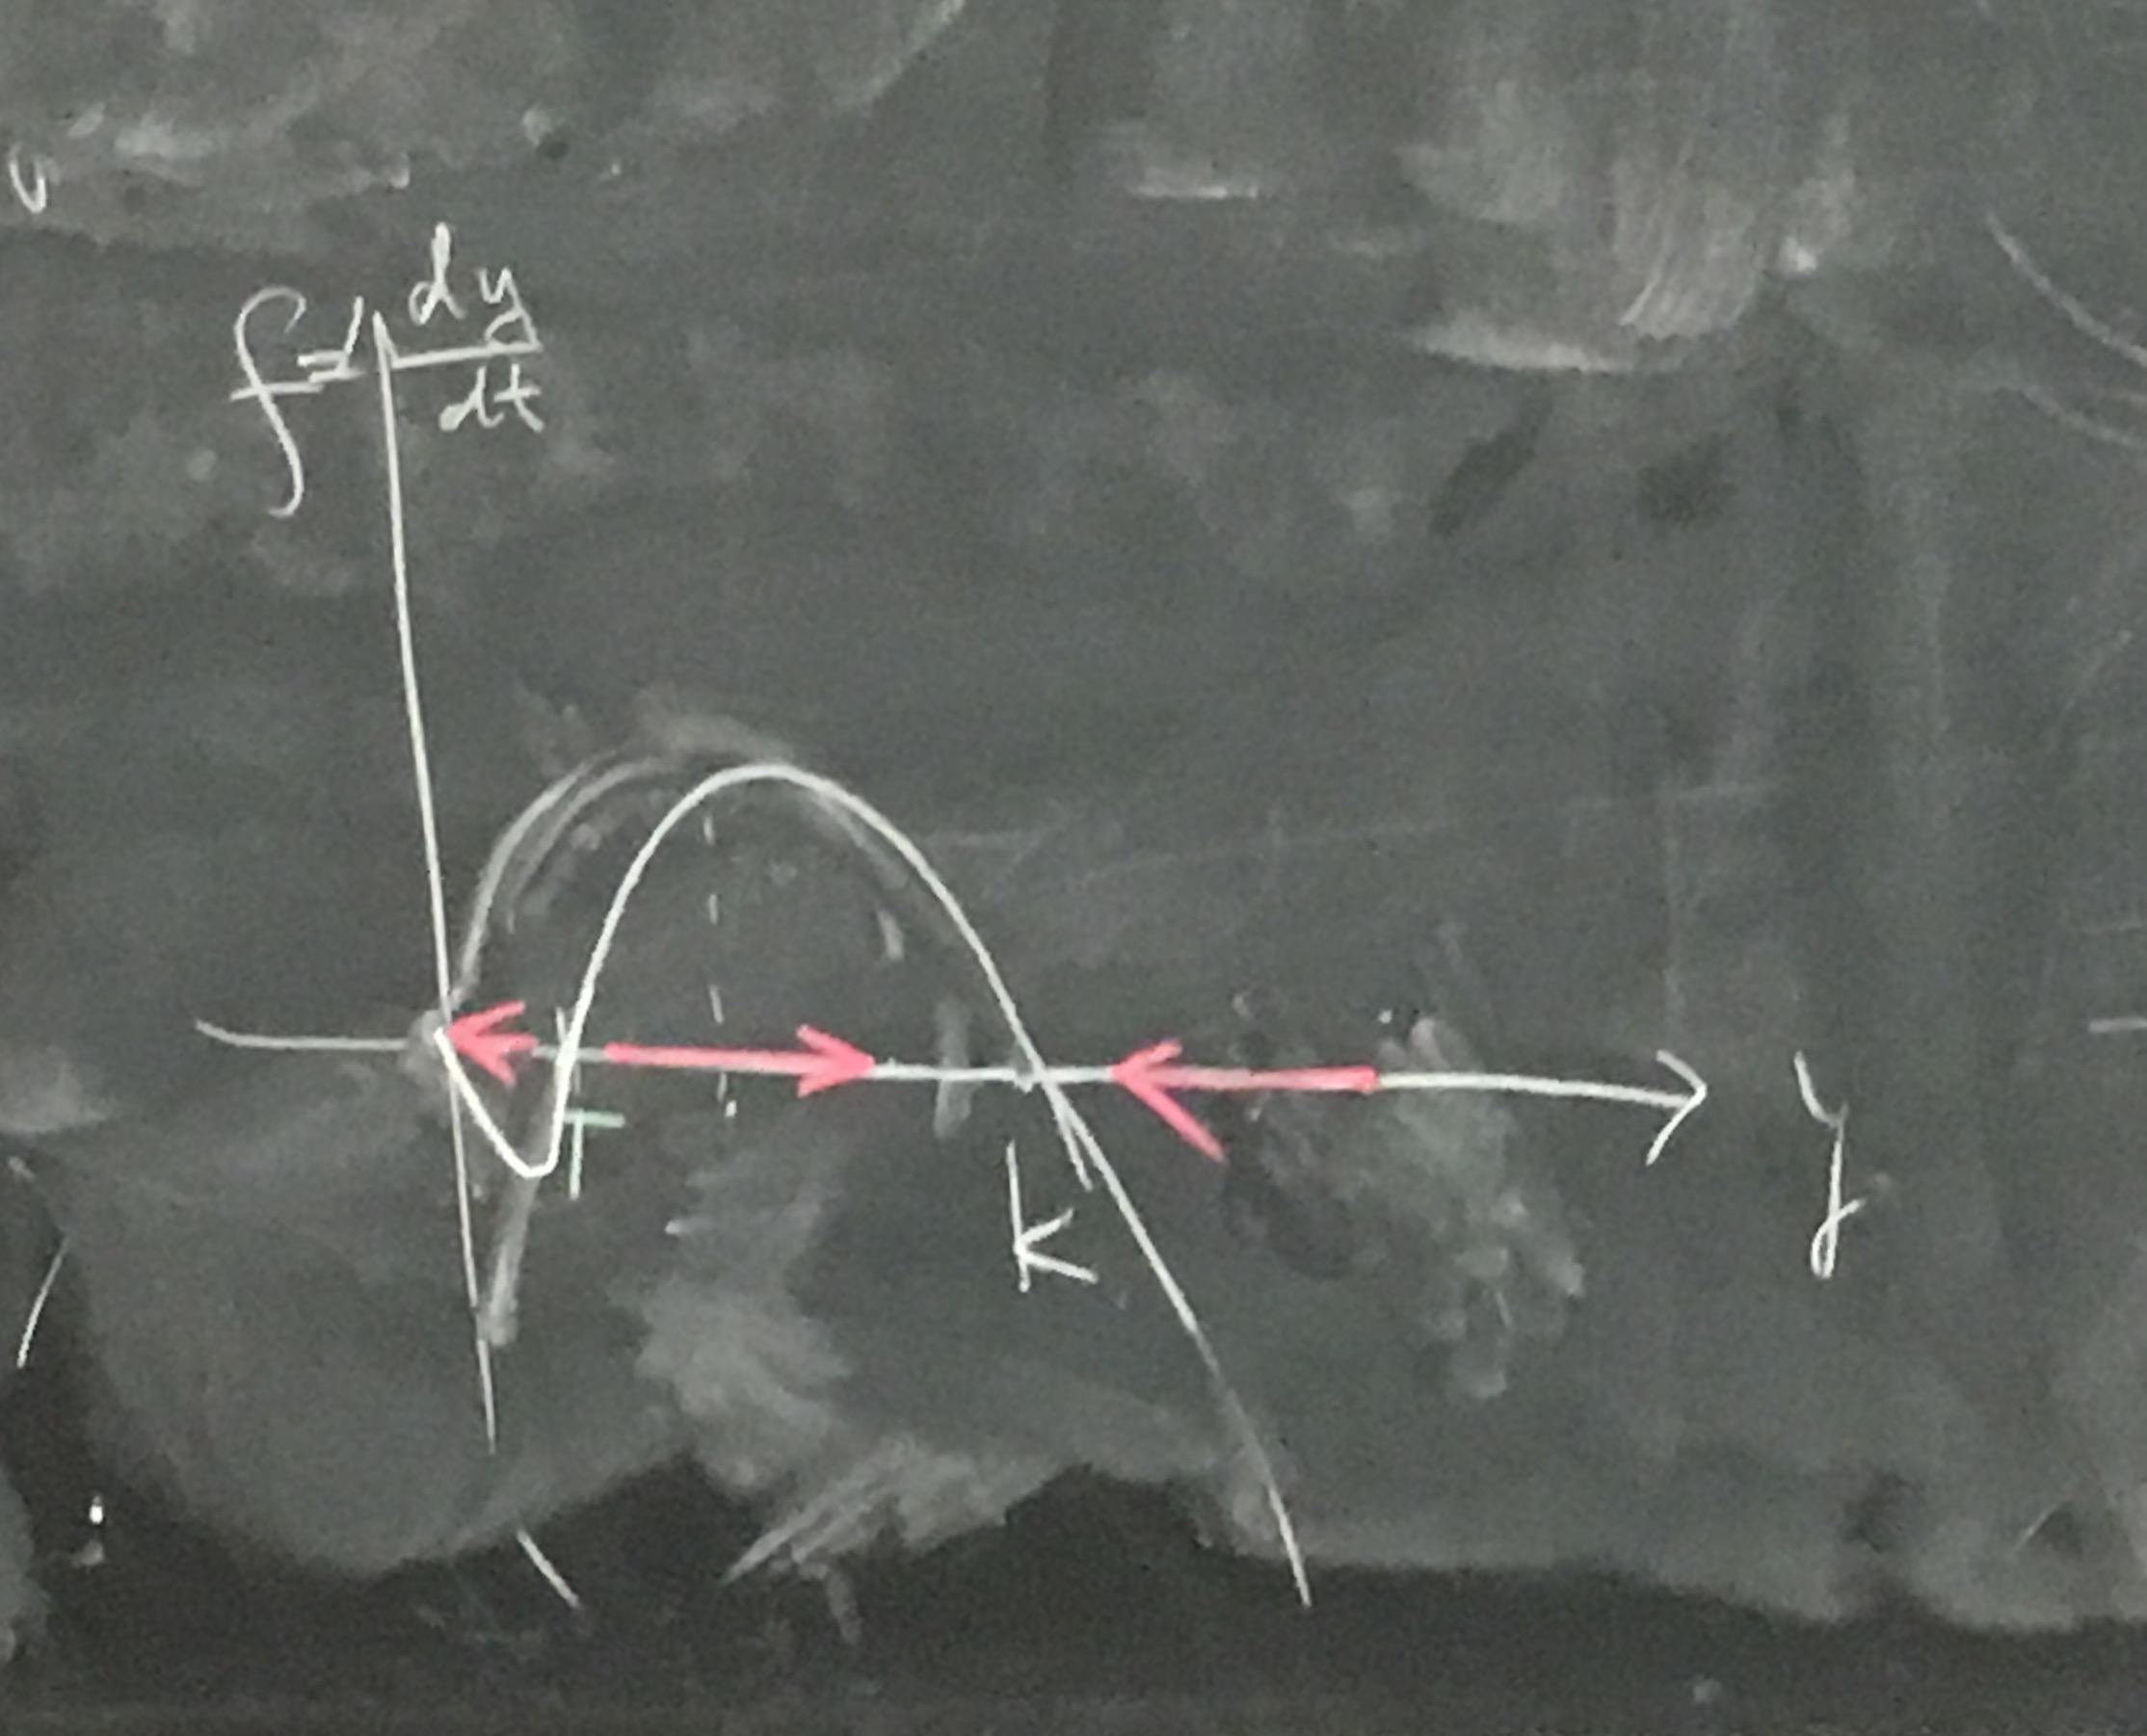 f = dy/dt
T
K
y